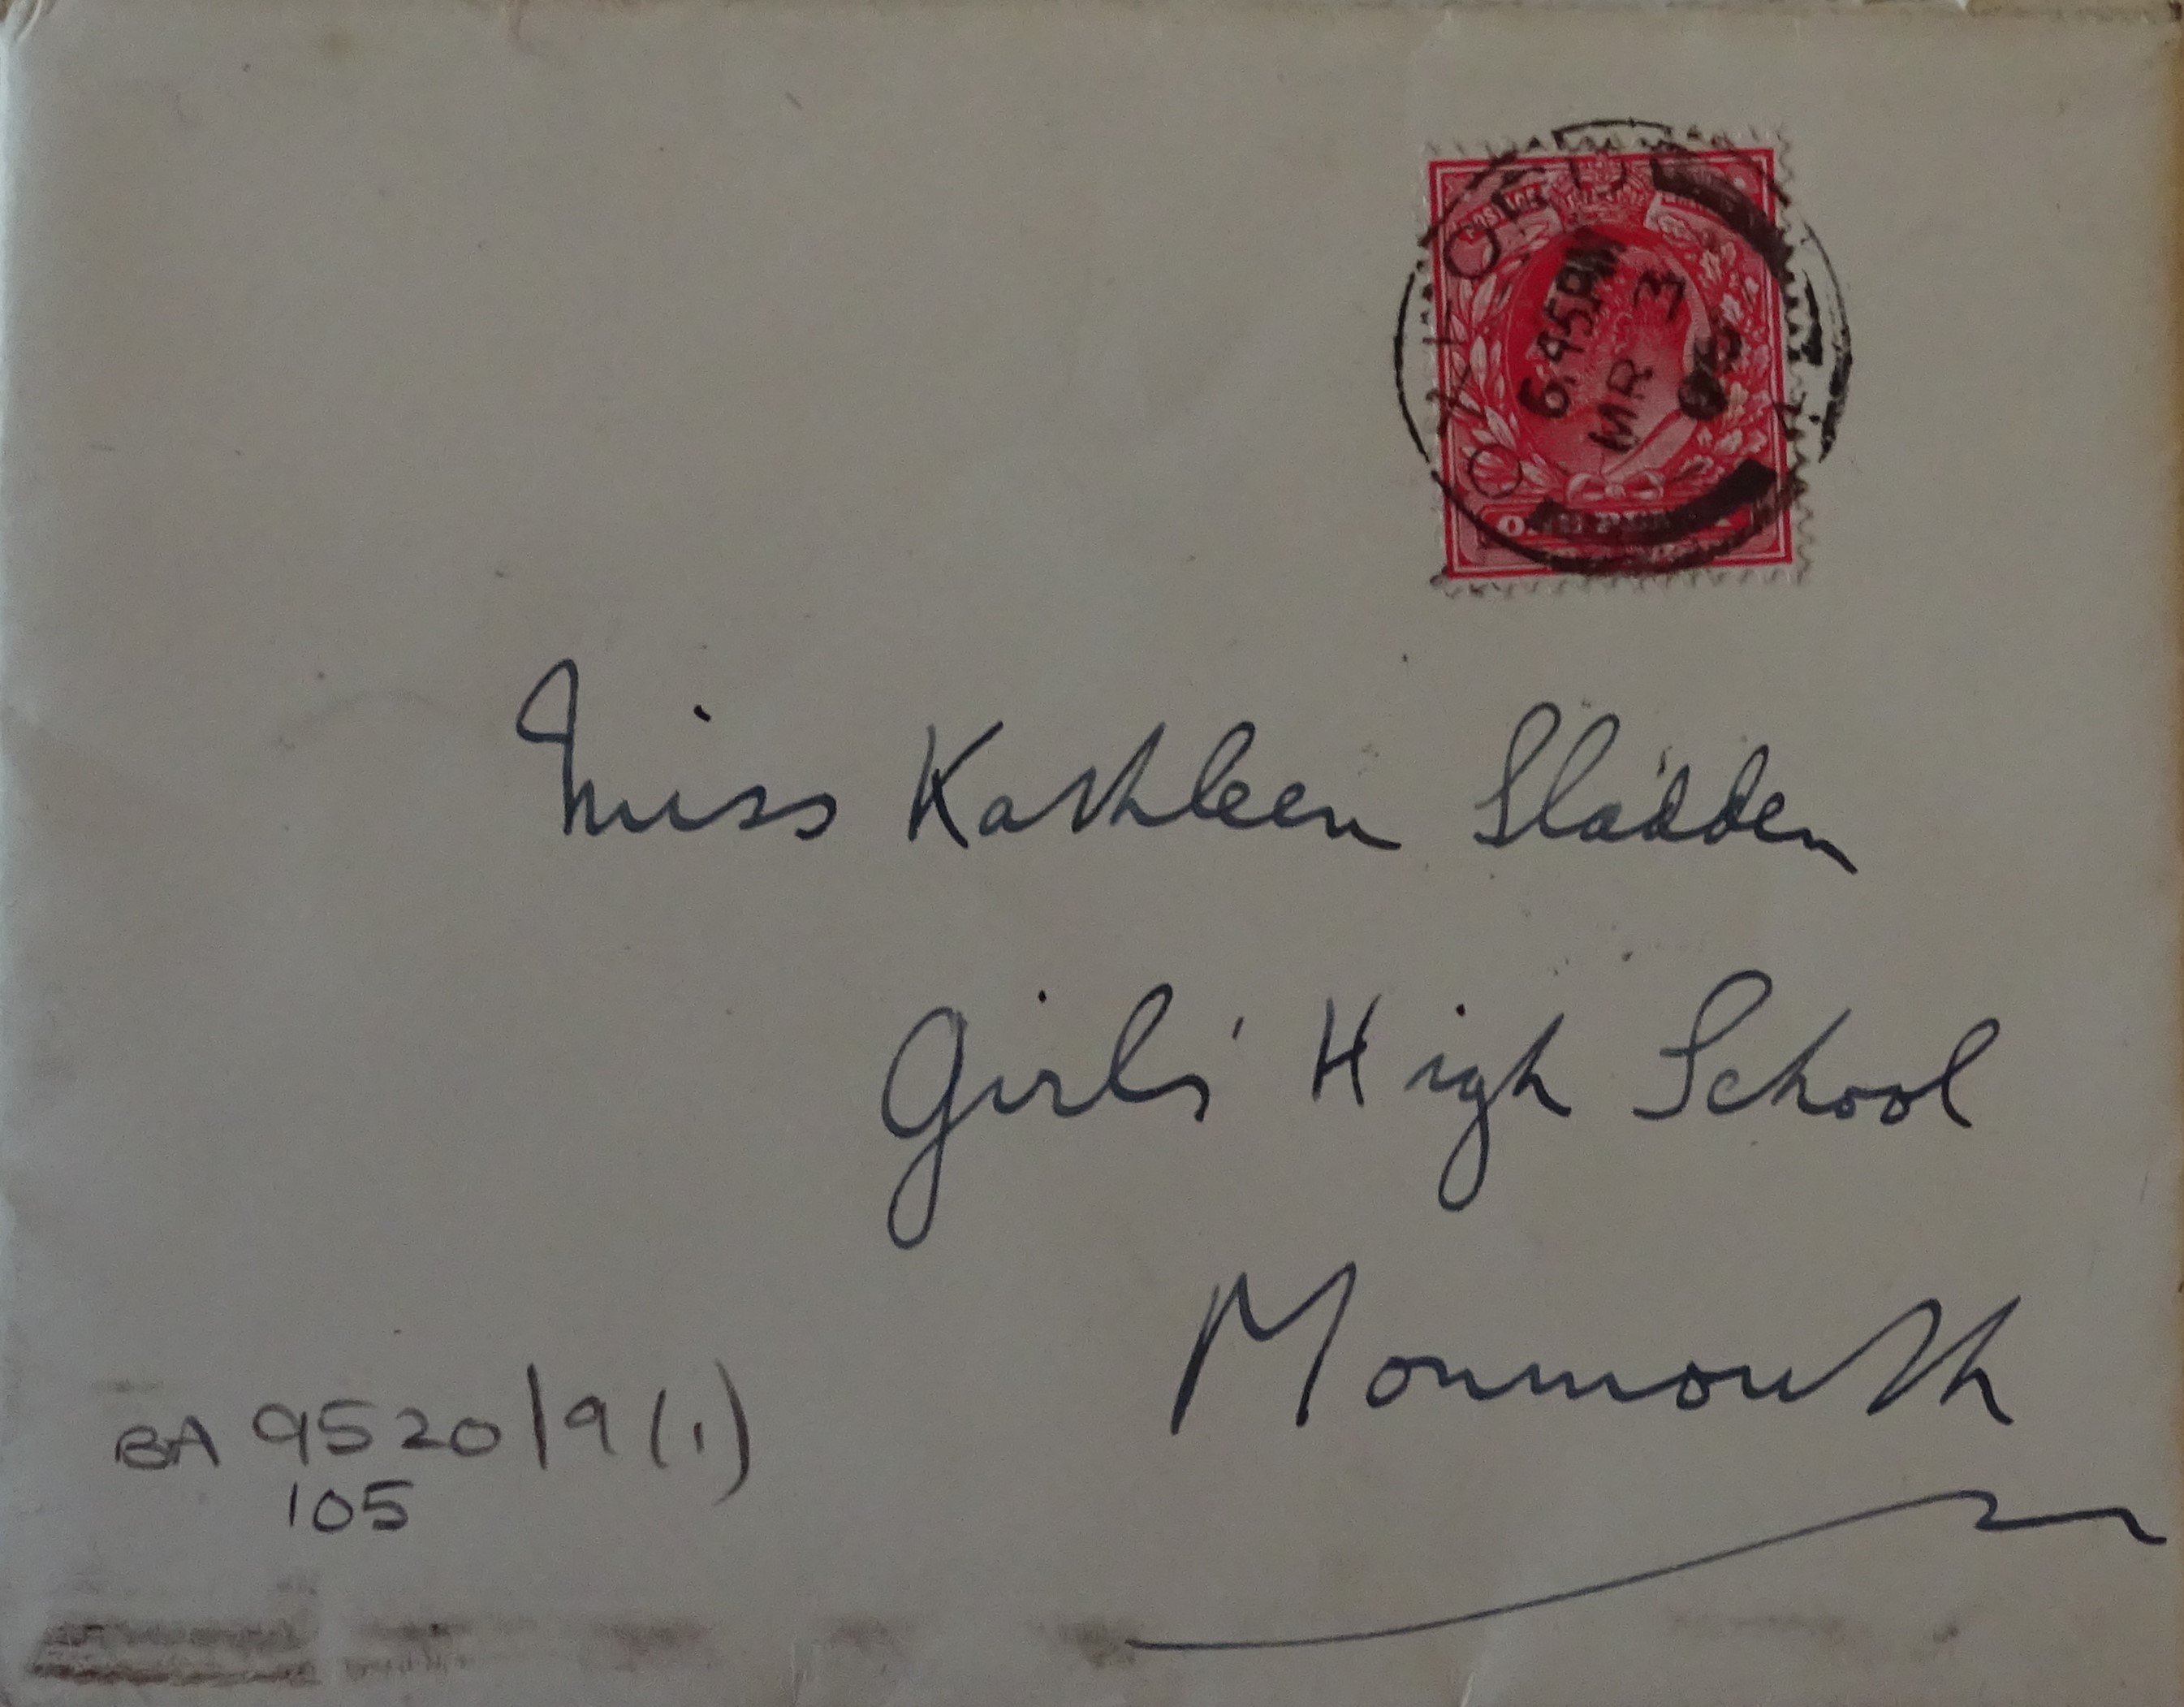 OXFORD
6.45PM
MR 3
POSTAGE
ONE PENNY
Miss Kathleen Sladden
Girls' High School
Monmouth
BA 9520/9(1)
105